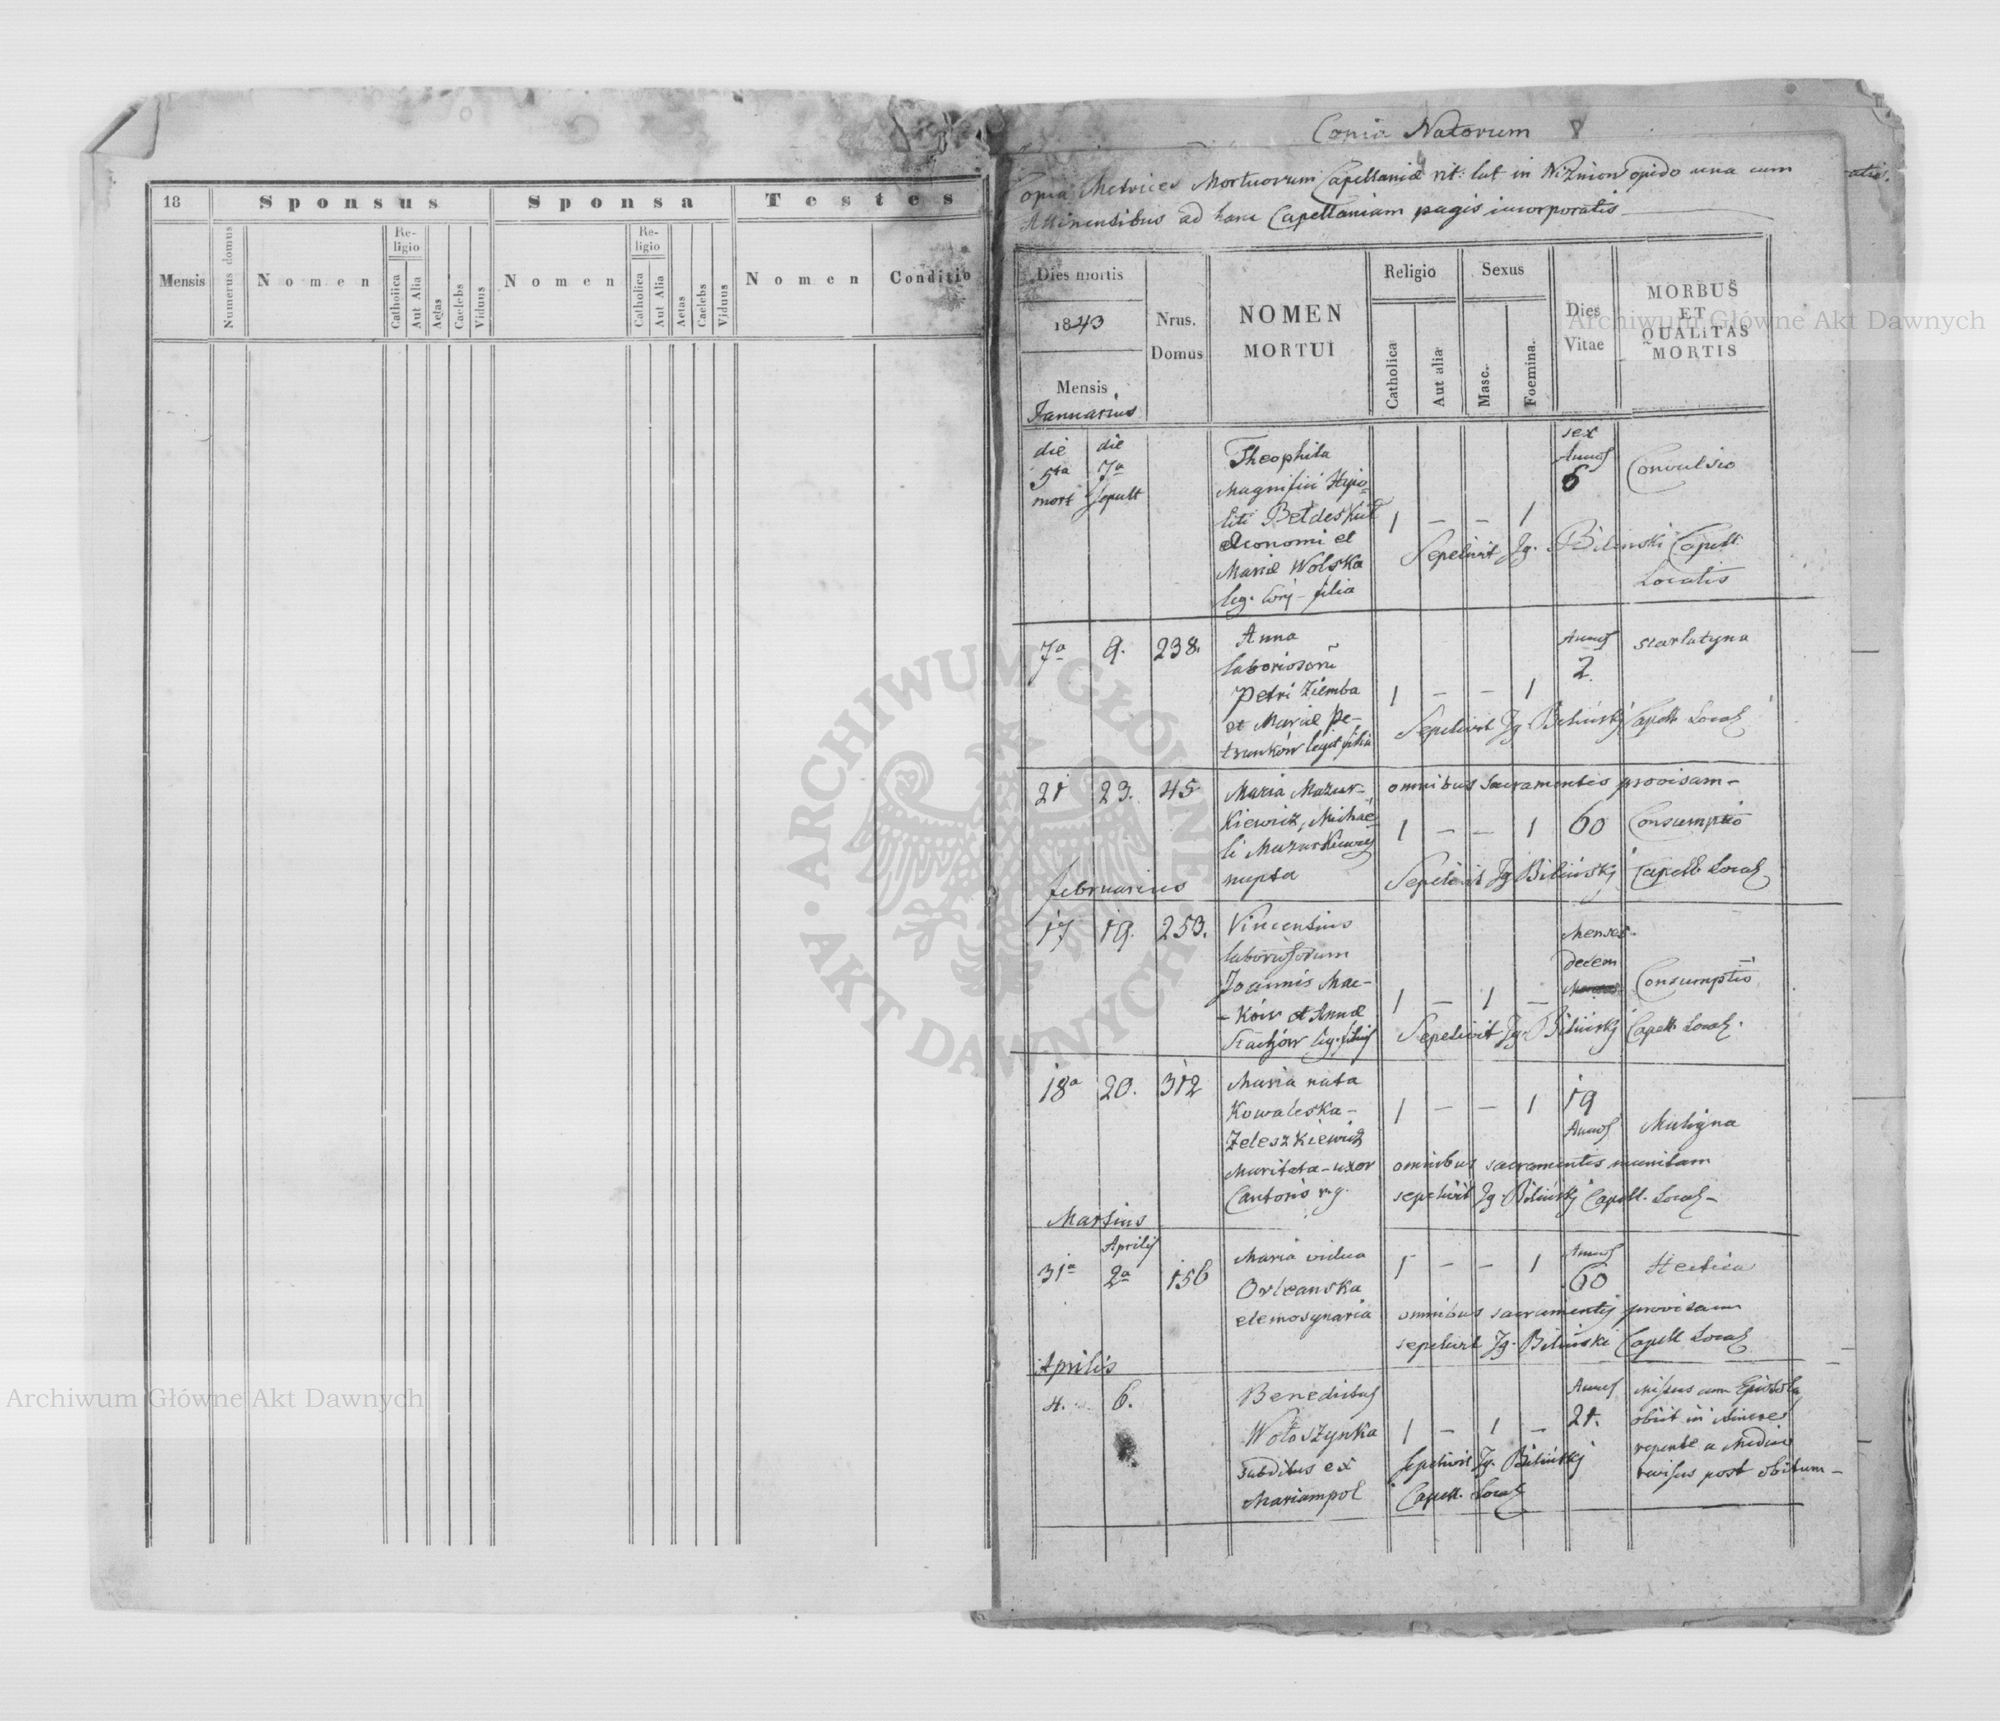 18
Sponsus
Sponsa
Testes
Mensis
Numerus domus
Nomen
Re-
ligio
Catholica
Aut Alia
Aetas
Caelebs
Viduus
Nomen
Re-
ligio
Catholica
Aut Alia
Aetas
Caelebs
Viduus
Nomen
Conditio
Copia Natorum
Copia Metrices Mortuorum Capellaniæ rit: lat in Niznion opido una cum
Attinensibus ad hanc Capellaniam pagis incorporatis
Dies mortis
1843
Mensis
Nrus.
Domus
NOMEN
MORTUI
Religio
Catholica
Aut alia
Sexus
Masc.
Foemina.
Dies
Vitae
MORBUS
ET
QUALITAS
MORTIS
Januarius
die die
5ta 7a
mort Sepult
Theophila
Magnifici Hypo-
liti
Economi et
Mariæ Wolska
leg. filia
1 – – 1
sex
Annos
6
Convulsio
Sepelivit Ig. Bilinski Capell.
Localis
7a 9. 238.
Anna
laboriosorũ
Petri Ziemba
et Mariæ Pe-
trunków legit filia
1 – – 1
Annos
2.
scarlatyna
Sepelivit Ig. Biliński Capell. Local
21 23. 45
Maria Mazur-
kiewicz, Michaë-
li Mazurkiewicz
nupta
omnibus sacramentis provisam –
1 – – 1 60 Consumptio
Sepelivit Ig Biliński Capell Local
februarius
17 19. 253.
Vincentius
laboriosorum
Joannis Mac-
-ków et Annæ
leg. filius
1 – 1 –
Menses
decem
Consumptio
Sepelivit Ig. Biliński Capell. Local.
18a 20. 312
Maria nata
Kowalska –
Zeleszkiewicz
Maritata – uxor
Cantoris r. g.
1 – – 1
19
Annos
Maligna
omnibus sacramentis munitam
sepelivit Ig Biliński Capell. Local –
Martius
Aprilis
31a 2a 156
Maria vidua
Orleanska
elemosynaria
1 – – 1
Annos
60
Hectica
omnibus sacramentis provisam
sepelivit Ig. Biliński Capell Local
Aprilis
4. 6.
Benedictus
Wołoszynka
subditus ex
Mariampol
1 – 1 –
Annos
21.
Missus cum Epistola
obiit in itinere
repente a Medico
revisus post obitum –
Sepelivit Ig. Biliński
Capell. Local
Archiwum Główne Akt Dawnych
Archiwum Główne Akt Dawnych
ARCHIWUM GŁÓWNE
AKT DAWNYCH